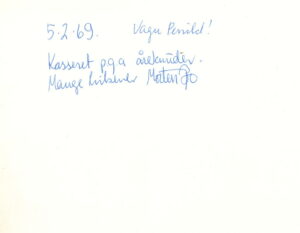 5.2.69. Vagn Persild!
Kasseret p.g.a åreknuder.
Mange hilsener Morten